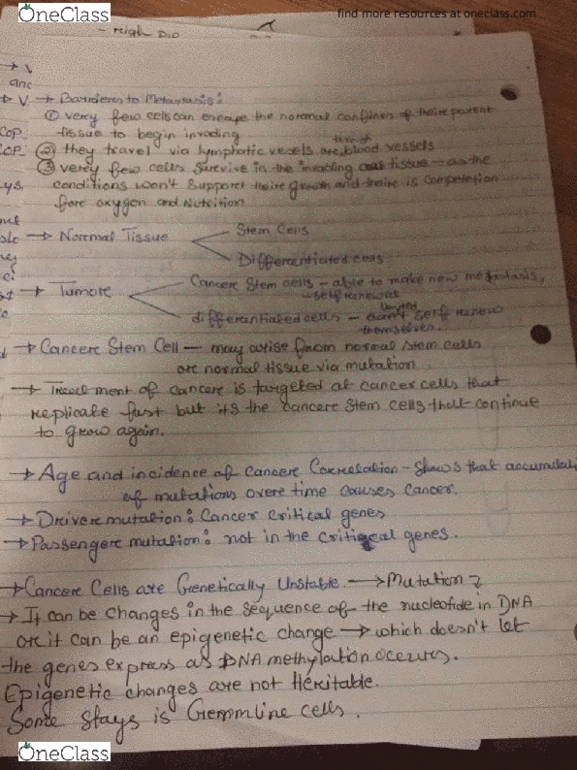 OneClass
find more resources at oneclass.com
- High D10
→ V
anc
→ V. → Barriers to Metastasis:
① very few cells can encape the normal confines of their parent
COP tissue to begin invading
COP ② they travel via lymphatic vecels are through blood vessels
③ very few cells survive in the invading tissue - as the
ys. conditions won't support their growth and their is competetion
for oxygen and Nutrition
→ Normal Tissue
Stem Cells
Differentiated cells
→ Tumor
Cancer Stem cells - able to make new metastasis,
- self renewal
differentiated cells - can't self renew
themselves..
→ Cancer Stem Cell - may arise from normal stem cells
or normal tissue via mutation
→ Treatment of cancer is targeted at cancer cells that
replicate fast but its the cancer stem cells that continue
to grow again.
→ Age and incidence of cancer Correlation - Shows that accumulati
of mutations over time causes cancer.
→ Driver mutation: Cancer critical genes
→ Passenger mutation: not in the critical genes.
→ Cancer Cells are Genetically Unstable. → Mutation
→ It can be changes in the sequence of the nucleotide in DNA
or it can be an epigenetic change → which doesn't let
the genes express as DNA methylation occurs.
Epigenetic changes are not Heritable.
Some Stays is Germline cells.
OneClass